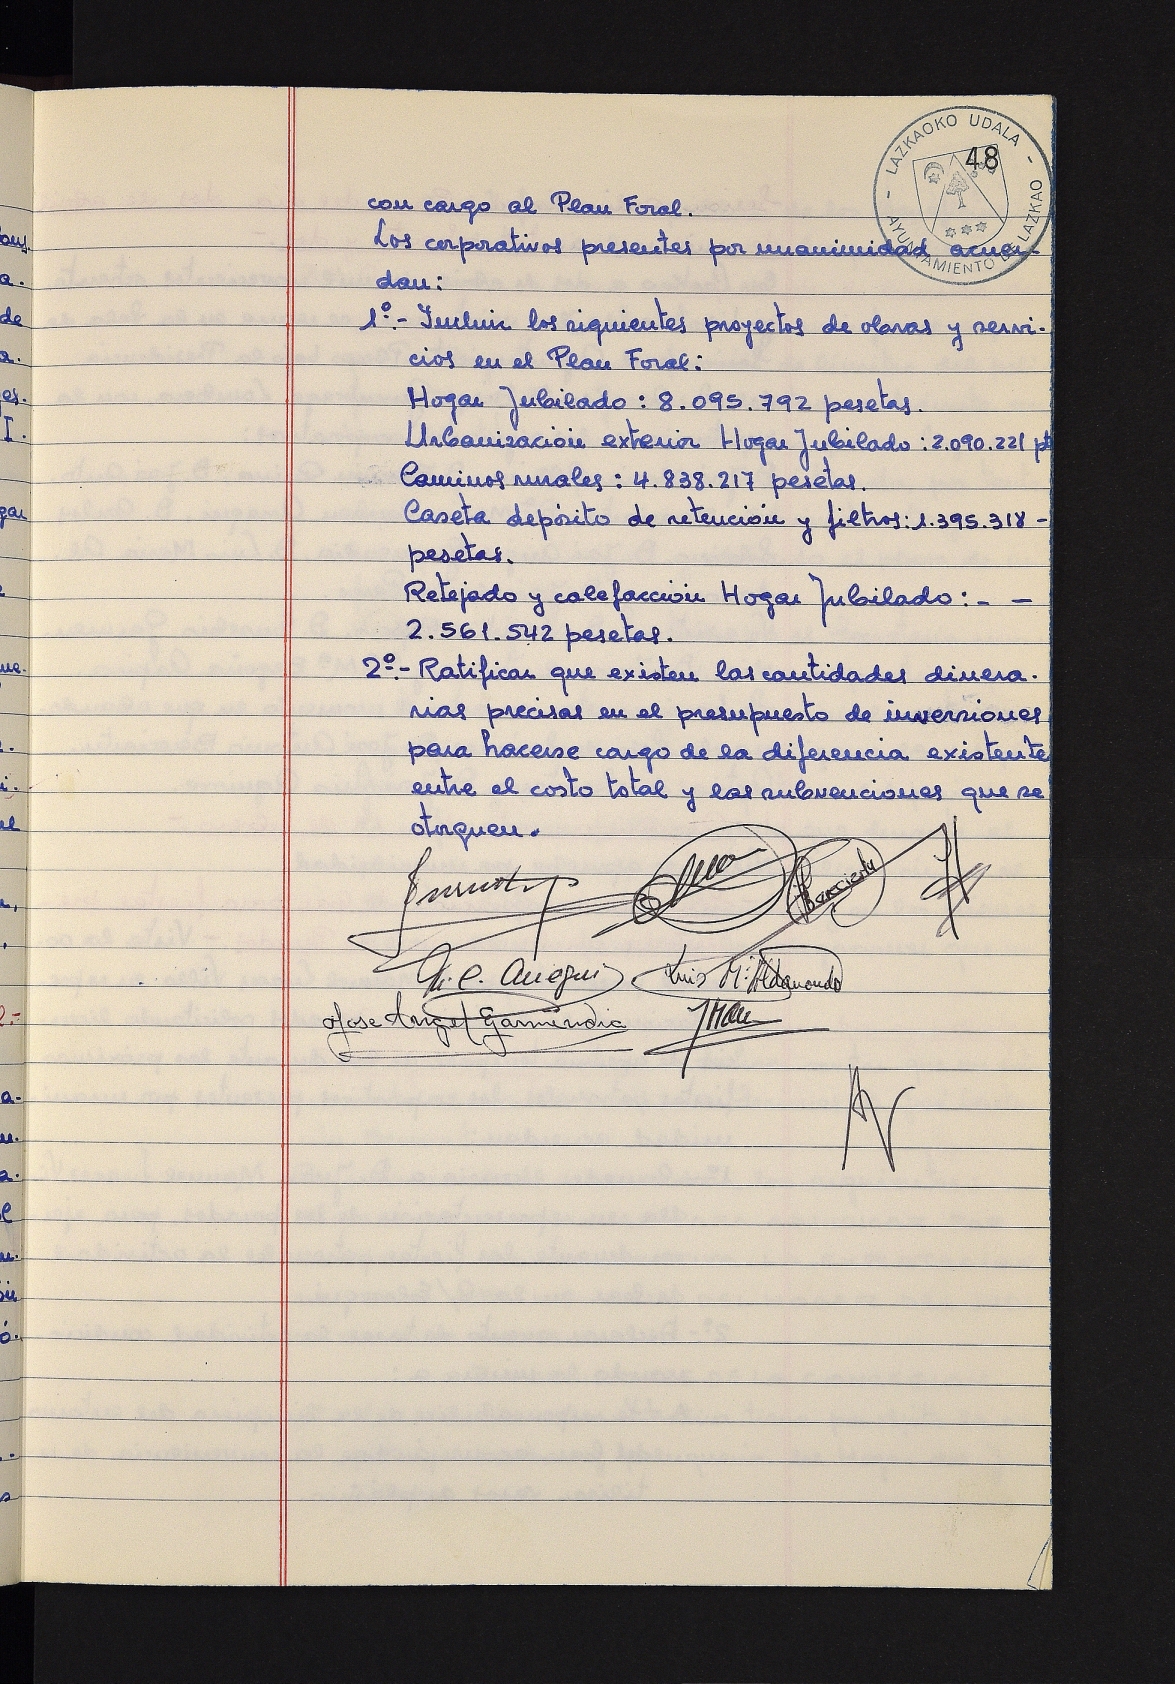 - LAZKAOKO UDALA -
AYUNTAMIENTO DE LAZKAO
48
con cargo al Plan Foral.
Los corporativos presentes por unanimidad acuer-
dan:
1º.- Incluir los siguientes proyectos de obras y servi-
cios en el Plan Foral:
Hogar Jubilado : 8.095.792 pesetas.
Urbanización exterior Hogar Jubilado : 2.090.221 pt
Caminos rurales : 4.838.217 pesetas.
Caseta depósito de retención y filtros: 1.395.318 -
pesetas.
Retejado y calefacción Hogar Jubilado : - -
2.561.542 pesetas.
2º.- Ratificar que existen las cantidades dinera-
rias precisas en el presupuesto de inversiones
para hacerse cargo de la diferencia existente
entre el costo total y las subvenciones que se
otorguen.
Luis Mª Aldanondo
Jose Angel Garmendia